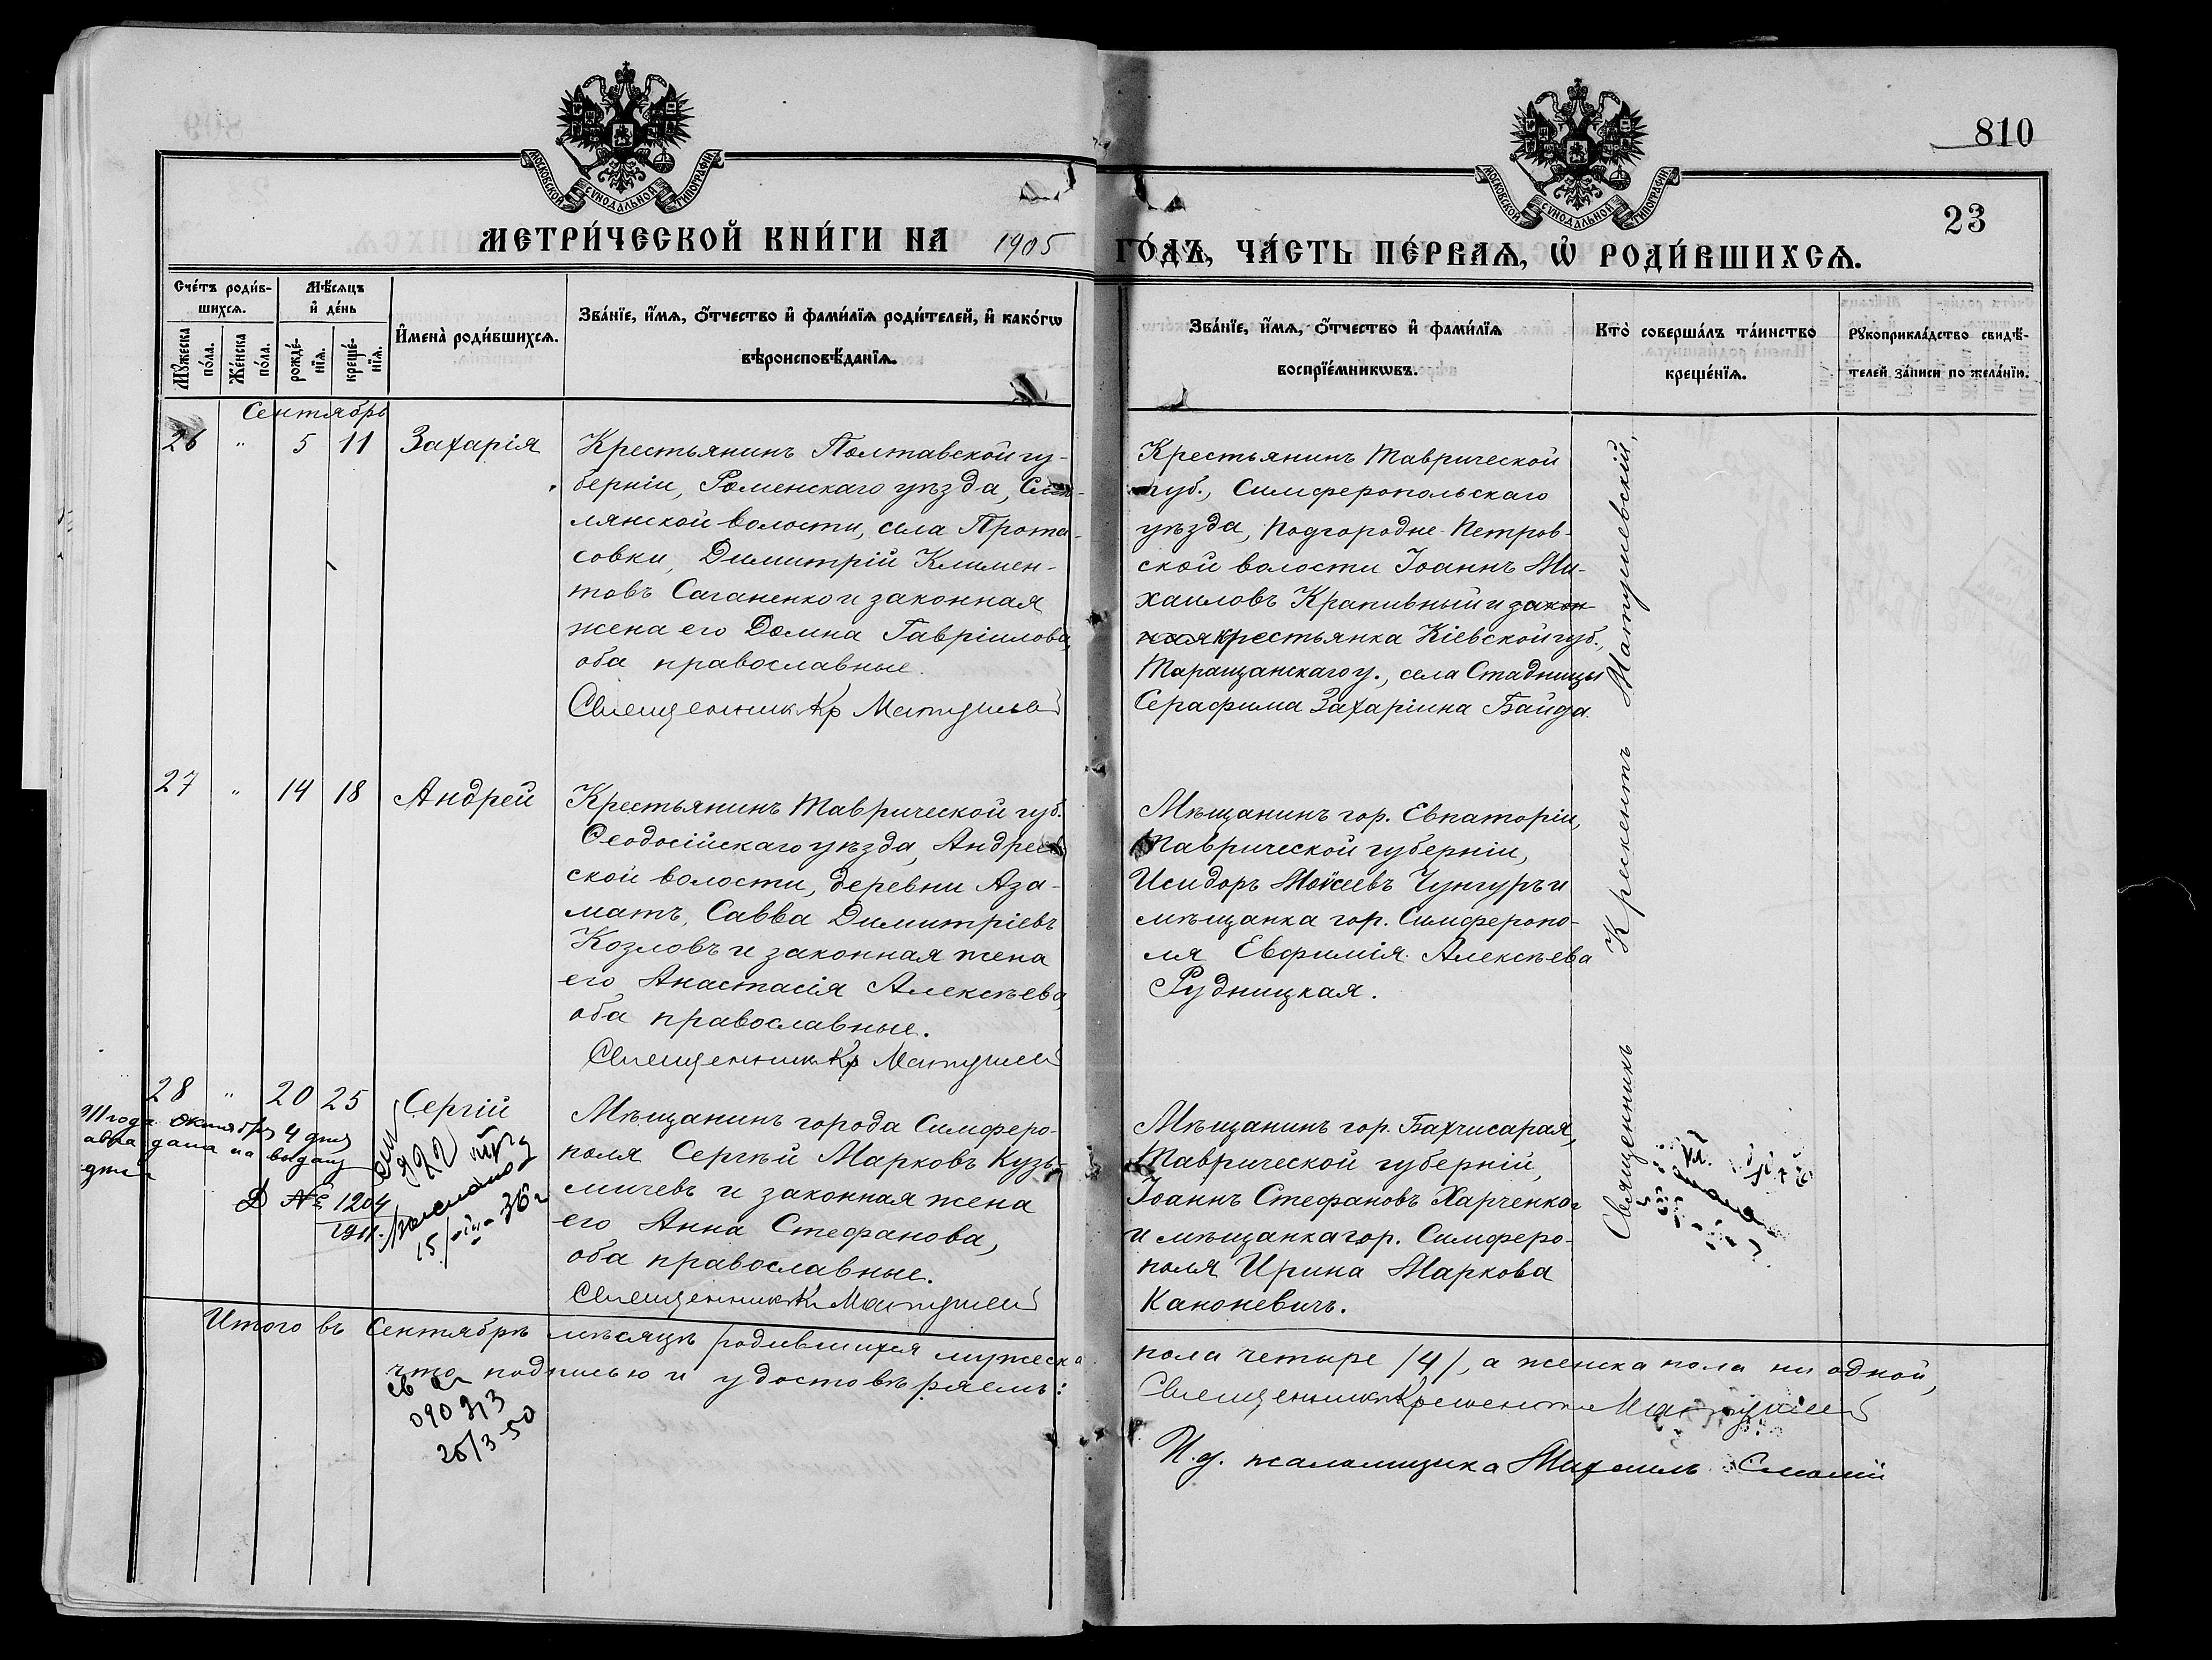 810
23
МОСКОВСКОЙ СУНОДАЛЬНОЙ ТИПОГРАФІИ
МОСКОВСКОЙ СУНОДАЛЬНОЙ ТИПОГРАФІИ
МЕТРИ́ЧЕСКОЙ КНИ́ГИ НА 1905 ГО́ДЪ, ЧА́СТЬ ПЕ́РВАѦ, Ѡ҆ РОДИ́ВШИХСѦ.
Сче́тъ роди́в-
шихсѧ.
Мꙋ́жеска по́ла.
Же́нска по́ла.
Мѣ́сѧцъ
и҆ де́нь
рожде́-
нїѧ.
креще́-
нїѧ.
И҆мена̀ роди́вшихсѧ.
Зва́нїе, и҆́мѧ, ѻ҆́тчество и҆ фами́лїѧ роди́телей, и҆ како́гѡ
вѣроисповѣ́данїѧ.
Зва́нїе, и҆́мѧ, ѻ҆́тчество и҆ фами́лїѧ
воспрїе́мникѡвъ.
Кто̀ соверша́лъ та́инство
креще́нїѧ.
Рꙋкоприкла́дство свидѣ́-
телей за́писи по жела́нїю.
Сентябрь
26 " 5 11 Захарія
Крестьянинъ Полтавской гу-
берніи, Роменскаго уѣзда, Смѣ-
лянской волости, села Прота-
совки, Димитрій Климен-
товъ Саганенко и законная
жена его Домна Гавріилова,
оба православные.
Священникъ Кр Матушев
Крестьянинъ Таврической
губ., Симферопольскаго
уѣзда, Подгородне-Петров-
ской волости Іоаннъ Ми-
хаиловъ Крапивный и закон-
ная крестьянка Кіевской губ.,
Таращанскаго у., села Стадницы
Серафима Захаріина Байда.
27 " 14 18 Андрей
Крестьянинъ Таврической губ.
Ѳеодосійскаго уѣзда, Андреев
ской волости, деревни Аза-
матъ, Савва Димитріевъ
Козловъ и законная жена
его Анастасія Алексѣева,
оба православные.
Священникъ Кр Матушев
Мѣщанинъ гор. Евпаторіи,
Таврической губерніи,
Исидоръ Моисеевъ Чунгуръ и
мѣщанка гор. Симферопо-
ля Евфимія Алексѣева
Рудницкая.
28 " 20 25 Сергій
Мѣщанинъ города Симферо-
поля Сергѣй Марковъ Кузь-
мичевъ и законная жена
его Анна Стефанова,
оба православные.
Священникъ Кр Матушев
Мѣщанинъ гор. Бахчисарая,
Таврической губерніи,
Іоаннъ Стефановъ Харченко
и мѣщанка гор. Симферо-
поля Ирина Маркова
Каноневичъ.
Священникъ Крискентъ Матушевскій,
911 года октября 4 дня
дана на выдачу
№ 1204
1911.
15/ 36 г
Итого въ Сентябрѣ мѣсяцѣ родившихся мужеска
пола четыре /4/, а женска пола ни одной,
что подписью и удостовѣряемъ:
Священникъ Крискентъ Матушев
И. д. псаломщика Михаилъ
090 913
25/3 50